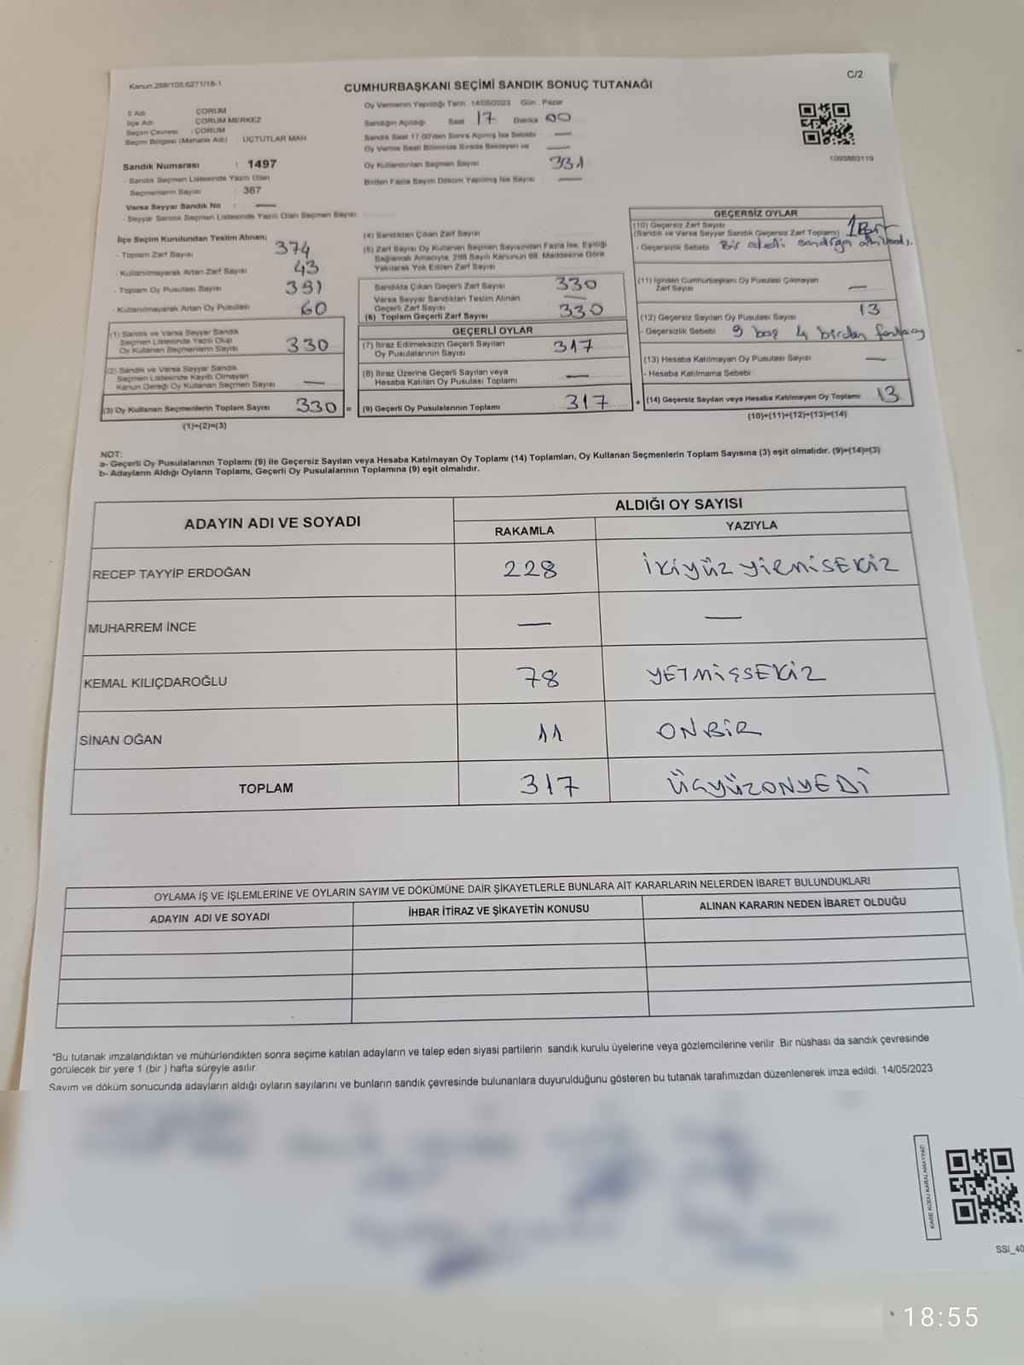 Kanun.298/105,6271/18-1
C/2
CUMHURBAŞKANI SEÇİMİ SANDIK SONUÇ TUTANAĞI
İl Adı ÇORUM
İlçe Adı ÇORUM MERKEZ
Seçim Çevresi : ÇORUM
Seçim Bölgesi (Mahalle Adı) ÜÇTUTLAR MAH
Sandık Numarası : 1497
- Sandık Seçmen Listesinde Yazılı Olan
Seçmenlerin Sayısı 367
Varsa Seyyar Sandık No : —
- Seyyar Sandık Seçmen Listesinde Yazılı Olan Seçmen Sayısı
Oy Vermenin Yapıldığı Tarih 14/05/2023 Gün : Pazar
Sandığın Açıldığı Saat 17 Dakika 00
Sandık Saat 17.00'den Sonra Açılmış İse Sebebi —
Oy Verme Saati Bitiminde Sırada Bekleyen ve —
Oy Kullandırılan Seçmen Sayısı 331
Birden Fazla Sayım Döküm Yapılmış İse Sayısı —
1005883119
İlçe Seçim Kurulundan Teslim Alınan;
- Toplam Zarf Sayısı 374
- Kullanılmayarak Artan Zarf Sayısı 43
- Toplam Oy Pusulası Sayısı 391
- Kullanılmayarak Artan Oy Pusulası 60
(1) Sandık ve Varsa Seyyar Sandık
Seçmen Listesinde Yazılı Olup
Oy Kullanan Seçmenlerin Sayısı 330
(2) Sandık ve Varsa Seyyar Sandık
Seçmen Listesinde Kayıtlı Olmayan
Kanun Gereği Oy Kullanan Seçmen Sayısı —
(3) Oy Kullanan Seçmenlerin Toplam Sayısı 330 =
(1)+(2)=(3)
(4) Sandıktan Çıkan Zarf Sayısı
(5) Zarf Sayısı Oy Kullanan Seçmen Sayısından Fazla İse, Eşitliği
Sağlamak Amacıyla, 298 Sayılı Kanunun 98. Maddesine Göre
Yakılarak Yok Edilen Zarf Sayısı
Sandıkta Çıkan Geçerli Zarf Sayısı 330
Varsa Seyyar Sandıktan Teslim Alınan
Geçerli Zarf Sayısı —
(6) Toplam Geçerli Zarf Sayısı 330
GEÇERLİ OYLAR
(7) İtiraz Edilmeksizin Geçerli Sayılan
Oy Pusulalarının Sayısı 317
(8) İtiraz Üzerine Geçerli Sayılan veya
Hesaba Katılan Oy Pusulası Toplamı —
(9) Geçerli Oy Pusulalarının Toplamı 317 +
GEÇERSİZ OYLAR
(10) Geçersiz Zarf Sayısı
(Sandık ve Varsa Seyyar Sandık Geçersiz Zarf Toplamı) 1
- Geçersizlik Sebebi Bir adedi sandığa atılmadı.
(11) İçinden Cumhurbaşkanı Oy Pusulası Çıkmayan
Zarf Sayısı —
(12) Geçersiz Sayılan Oy Pusulası Sayısı 13
- Geçersizlik Sebebi 9 boş 4 birden fazla oy
(13) Hesaba Katılmayan Oy Pusulası Sayısı —
- Hesaba Katılmama Sebebi
(14) Geçersiz Sayılan veya Hesaba Katılmayan Oy Toplamı 13
(10)+(11)+(12)+(13)=(14)
NOT:
a- Geçerli Oy Pusulalarının Toplamı (9) ile Geçersiz Sayılan veya Hesaba Katılmayan Oy Toplamı (14) Toplamları, Oy Kullanan Seçmenlerin Toplam Sayısına (3) eşit olmalıdır. (9)+(14)=(3)
b- Adayların Aldığı Oyların Toplamı, Geçerli Oy Pusulalarının Toplamına (9) eşit olmalıdır.
ADAYIN ADI VE SOYADI
ALDIĞI OY SAYISI
RAKAMLA YAZIYLA
RECEP TAYYİP ERDOĞAN 228 İKİYÜZ YİRMİSEKİZ
MUHARREM İNCE — —
KEMAL KILIÇDAROĞLU 78 YETMİŞSEKİZ
SİNAN OĞAN 11 ONBİR
TOPLAM 317 ÜÇYÜZONYEDİ
OYLAMA İŞ VE İŞLEMLERİNE VE OYLARIN SAYIM VE DÖKÜMÜNE DAİR ŞİKAYETLERLE BUNLARA AİT KARARLARIN NELERDEN İBARET BULUNDUKLARI
ADAYIN ADI VE SOYADI İHBAR İTİRAZ VE ŞİKAYETİN KONUSU ALINAN KARARIN NEDEN İBARET OLDUĞU
*Bu tutanak imzalandıktan ve mühürlendikten sonra seçime katılan adayların ve talep eden siyasi partilerin sandık kurulu üyelerine veya gözlemcilerine verilir. Bir nüshası da sandık çevresinde
görülecek bir yere 1 (bir ) hafta süreyle asılır.
Sayım ve döküm sonucunda adayların aldığı oyların sayılarını ve bunların sandık çevresinde bulunanlara duyurulduğunu gösteren bu tutanak tarafımızdan düzenlenerek imza edildi. 14/05/2023
SSI_40
18:55